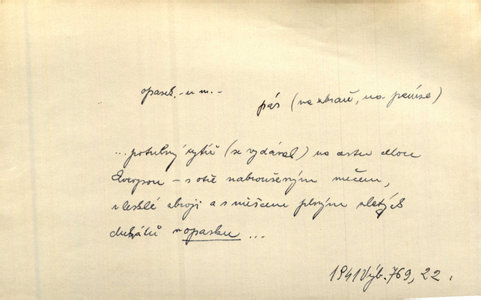 opasek -u m. -
pás (na zbraň, na peníze)
... potulný rytíř (se vydával) na cestu
Evropou – s ostře nabroušeným mečem,
v lesklé zbroji a s měšcem plným zlatých
dukátů v opasku ...
1941 Výb. 769, 22.